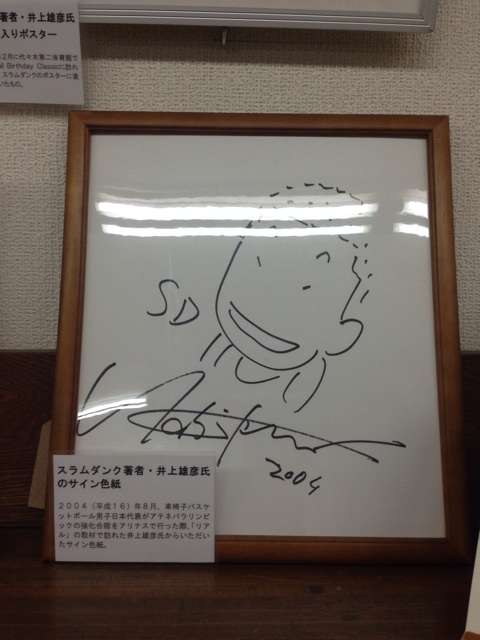 著者・井上雄彦氏
入りポスター
2月に代々木第二体育館で
Birthday Classicに訪れ
スラムダンクのポスターに直
いたもの。
SD
2004
スラムダンク著者・井上雄彦氏
のサイン色紙
2004（平成16）年8月、車椅子バスケ
ットボール男子日本代表がアテネパラリンピ
ックの強化合宿をアリナスで行った際、「リア
ル」の取材で訪れた井上雄彦氏からいただい
たサイン色紙。